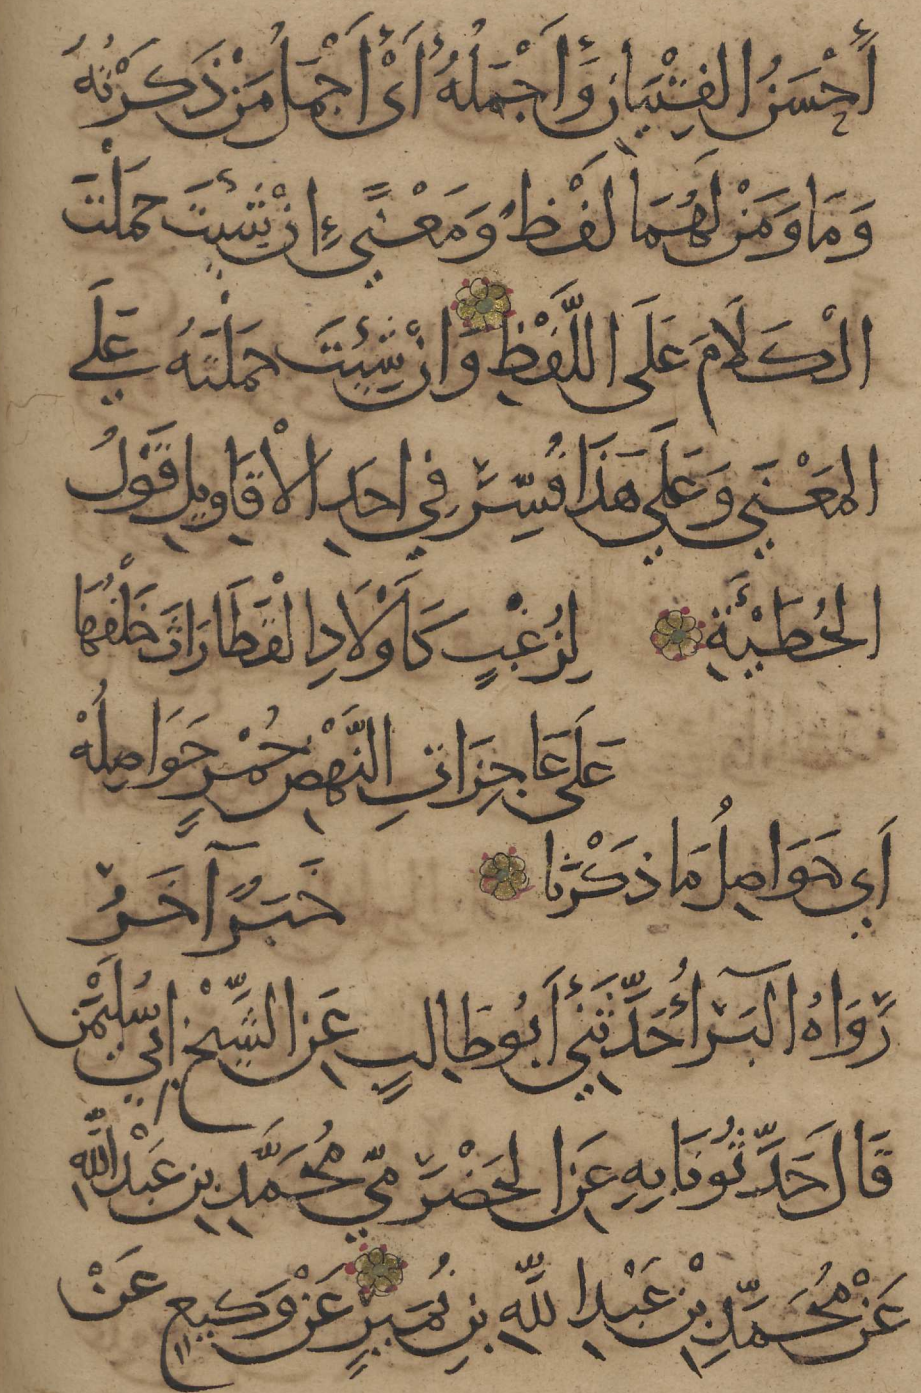 أَحْسَنُ الفِتْيَانِ وَأَجْمَلُهُ أَىْ أَجْمَلُ مَنْ ذَكَرْتُهُ
وَمَا وَمَنْ لَهُمَا لَفْظٌ وَمَعْنًى إِنْ شِئْتَ حَمَلْتَ
الْكَلَامَ عَلَى اللَّفْظِ وَإِنْ شِئْتَ حَمَلْتَهُ عَلَى
المَعْنَى وَعَلَى هَذَا فُسِّرَ فِي احَدِ الْأقَاوِيلِ قَوْلُ
الحُطَيْئَةِ لِزُغْبٍ كَأَوْلَادِ القَطَا رَاثَ خَلْفُهَا
عَلَى عَاجِزَاتِ النَّهْضِ حُمْرٍ حَوَاصِلُهْ
أَي حَوَاصِلُ مَا ذَكَرْنَا خَبَرٌ آخَرُ
رَوَاهُ البَرَاءُ حَدَّثَنِي أَبُو طَالِبٍ عَنِ الشَّيْخِ ابِي سُلَيْمٰن
قَالَ حَدَّثُونَا بِهِ عَنِ الحَضْرَمِيّ مُحَمَّدِ بنِ عَبْدِ اللّٰهِ
عَنْ مُحَمَّدِ بْنِ عَبْدِ اللّٰهِ بنِ نُمَيرٍ عَنْ وَكِيعٍ عَنْ